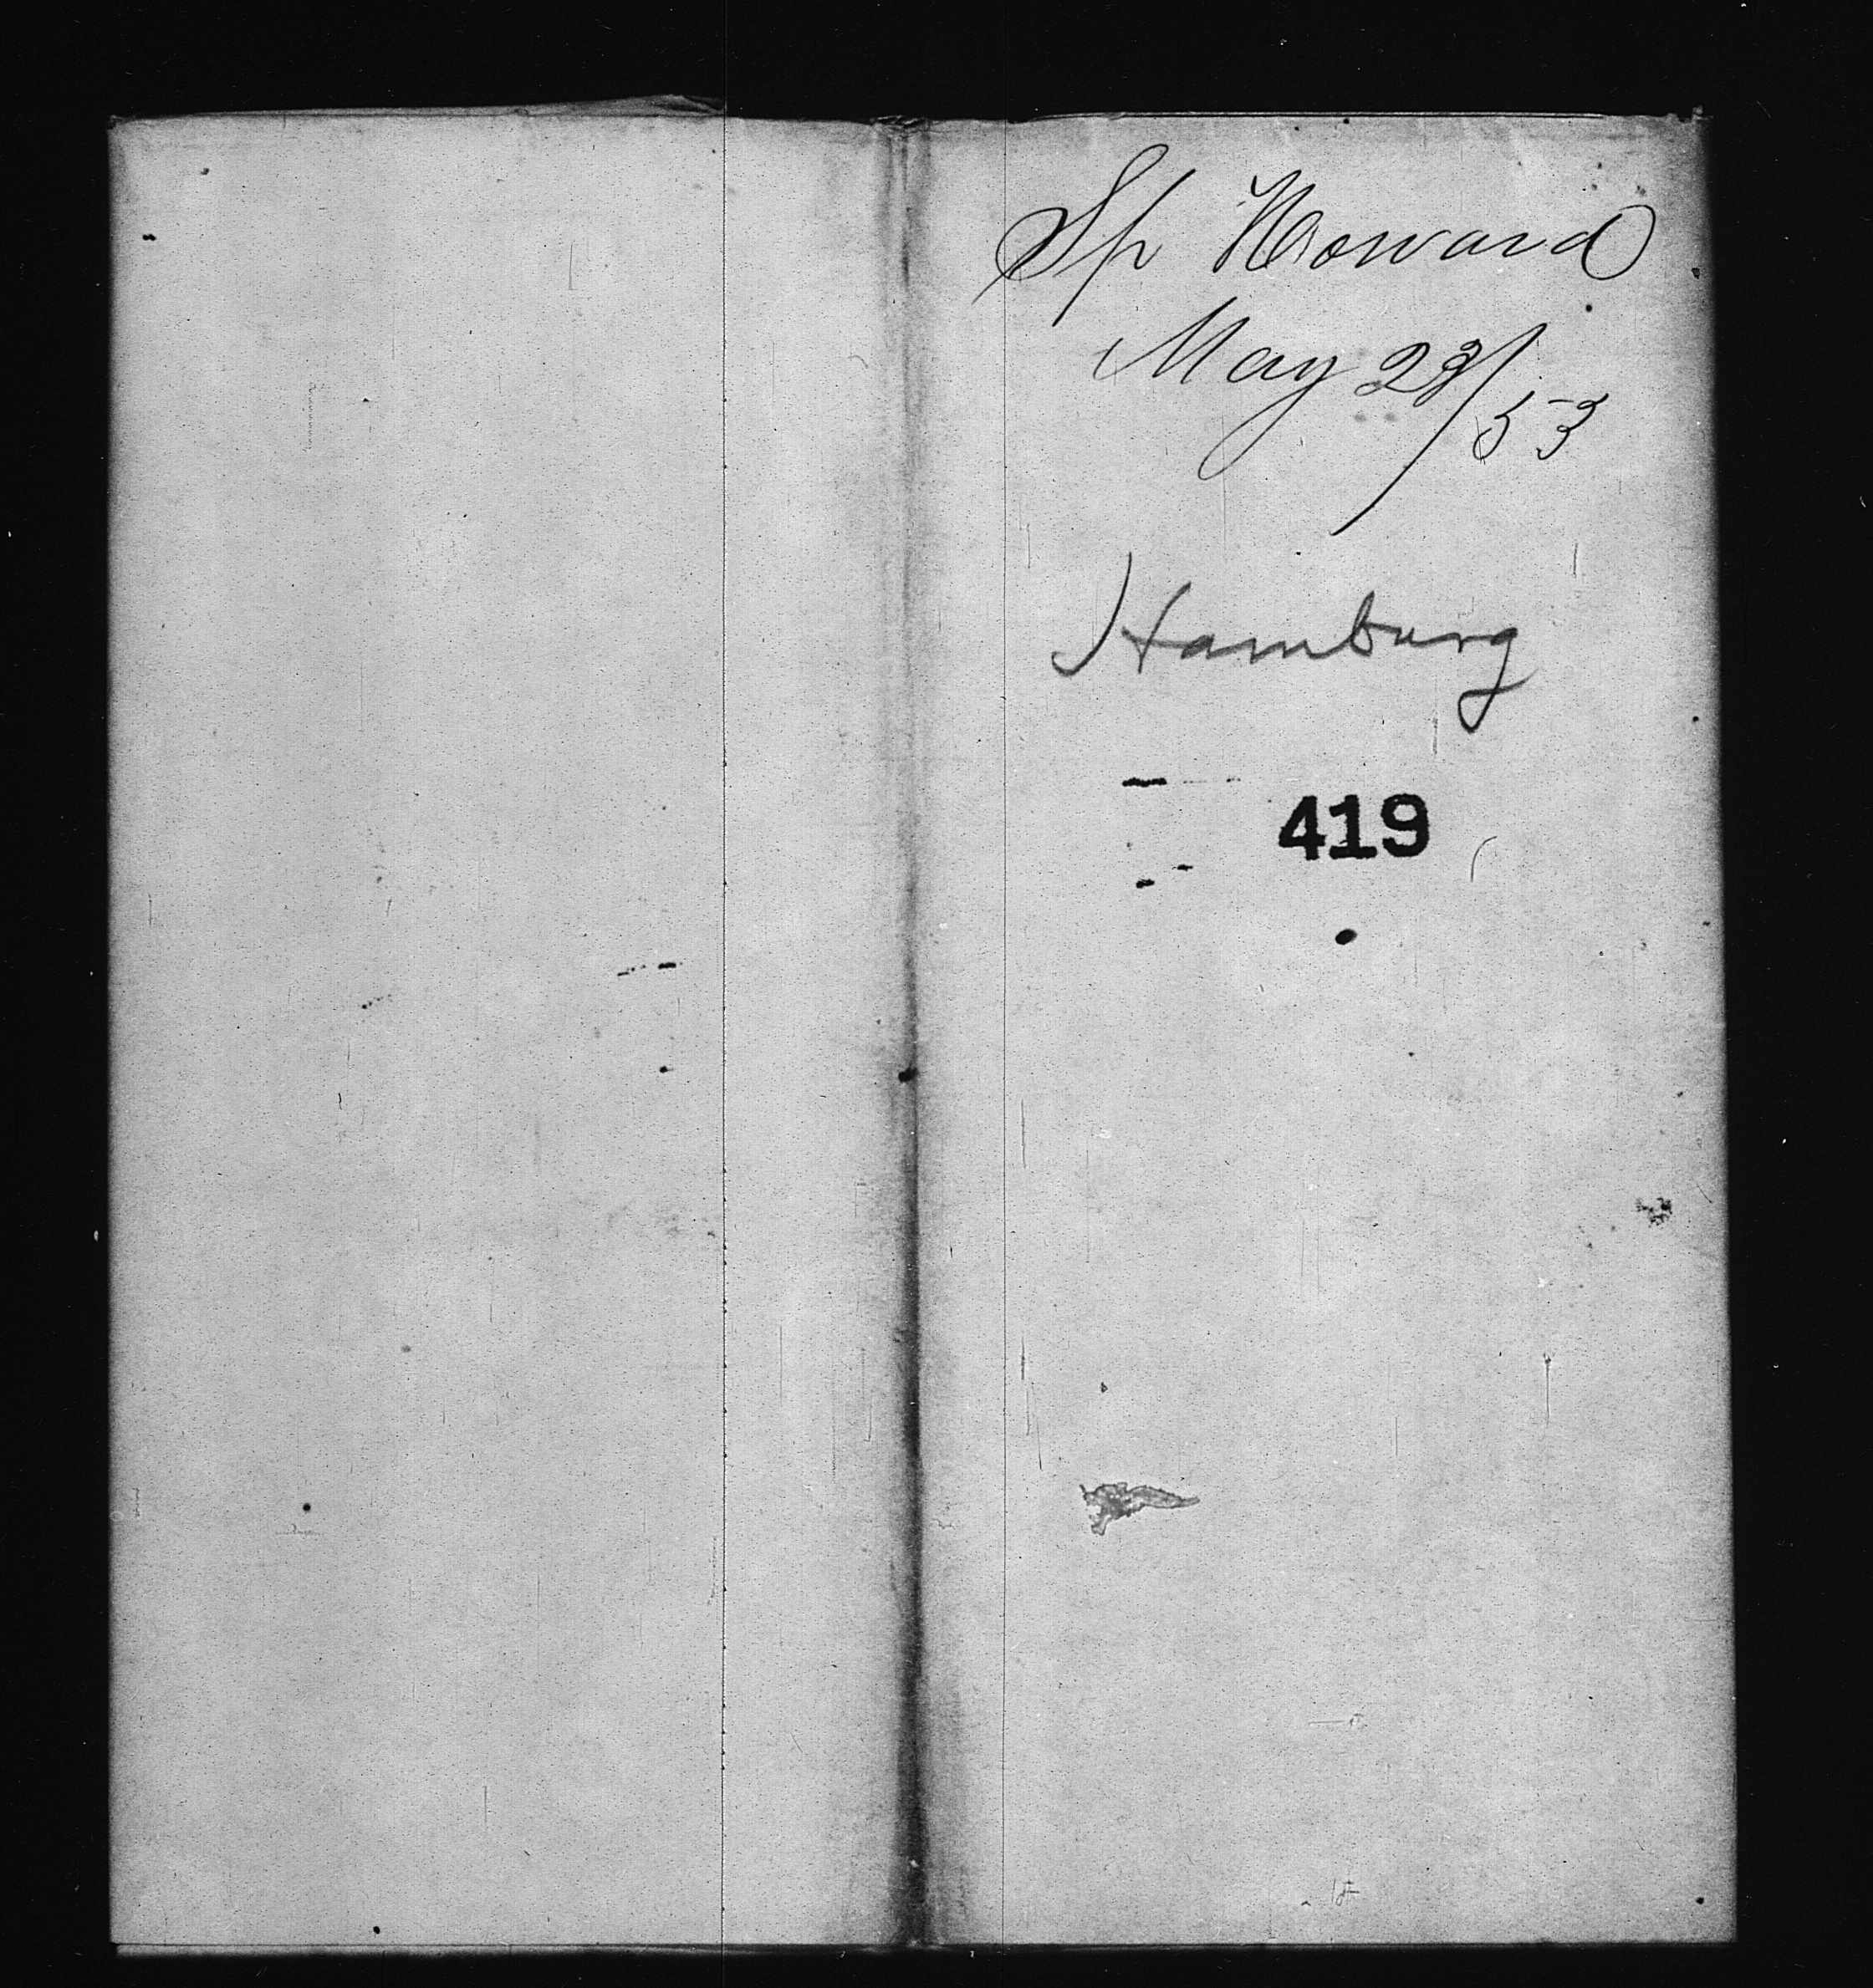 Sh Howard
May 23/53
Hamburg
419